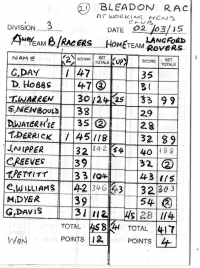 (21) BLEADON RAC
AT WORKING MENS CLUB
DIVISION 3 DATE 02/03/15
AWAY TEAM B/RACERS HOME TEAM LANGFORD ROVERS
NAME "2" SCORE SET TOTALS "UP" SCORE SET TOTALS
G.DAY 1 47 35
D. HOBBS 47 3 31
T.WARREN 30 124 25 33 99
S.NEWBOULD 38 35
29
T.DERRICK 1 45 118 32 89
J.NIPPER 32 242 54 40 188
C.REEVES 39 32 2
T.PETTITT 33 104 43 115
C.WILLIAMS 42 346 43 32 303
M.DYER 39 54 2
G.DAVIS 31 112 1/5 28 114
TOTAL 458 41 TOTAL 417
WON POINTS 12 POINTS 4